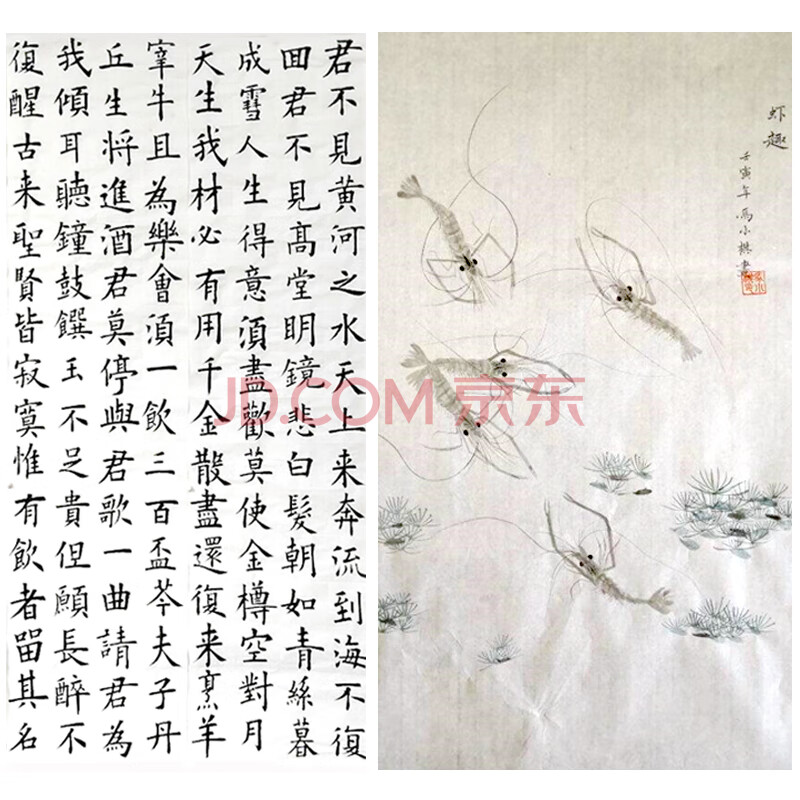 君不見黄河之水天上来奔流到海不復
回君不見高堂明鏡悲白髮朝如青絲暮
成雪人生得意須盡歡莫使金樽空對月
天生我材必有用千金散盡還復来烹羊
宰牛且為樂會須一飲三百盃芩夫子丹
丘生將進酒君莫停與君歌一曲請君為
我傾耳聽鐘鼓饌玉不足貴但願長醉不
復醒古来聖賢皆寂寞惟有飲者畱其名
虾趣
壬寅年馮小
JD.COM 京东